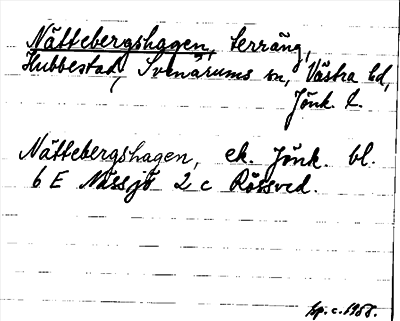 Nättebergshagen, terräng,
Hubbestad, Svenarums sn, Västra hd,
Jönk. l.
Nättebergshagen, ek. Jönk. bl.
6 E Nässjö 2 c Rössved.
c. 1958.